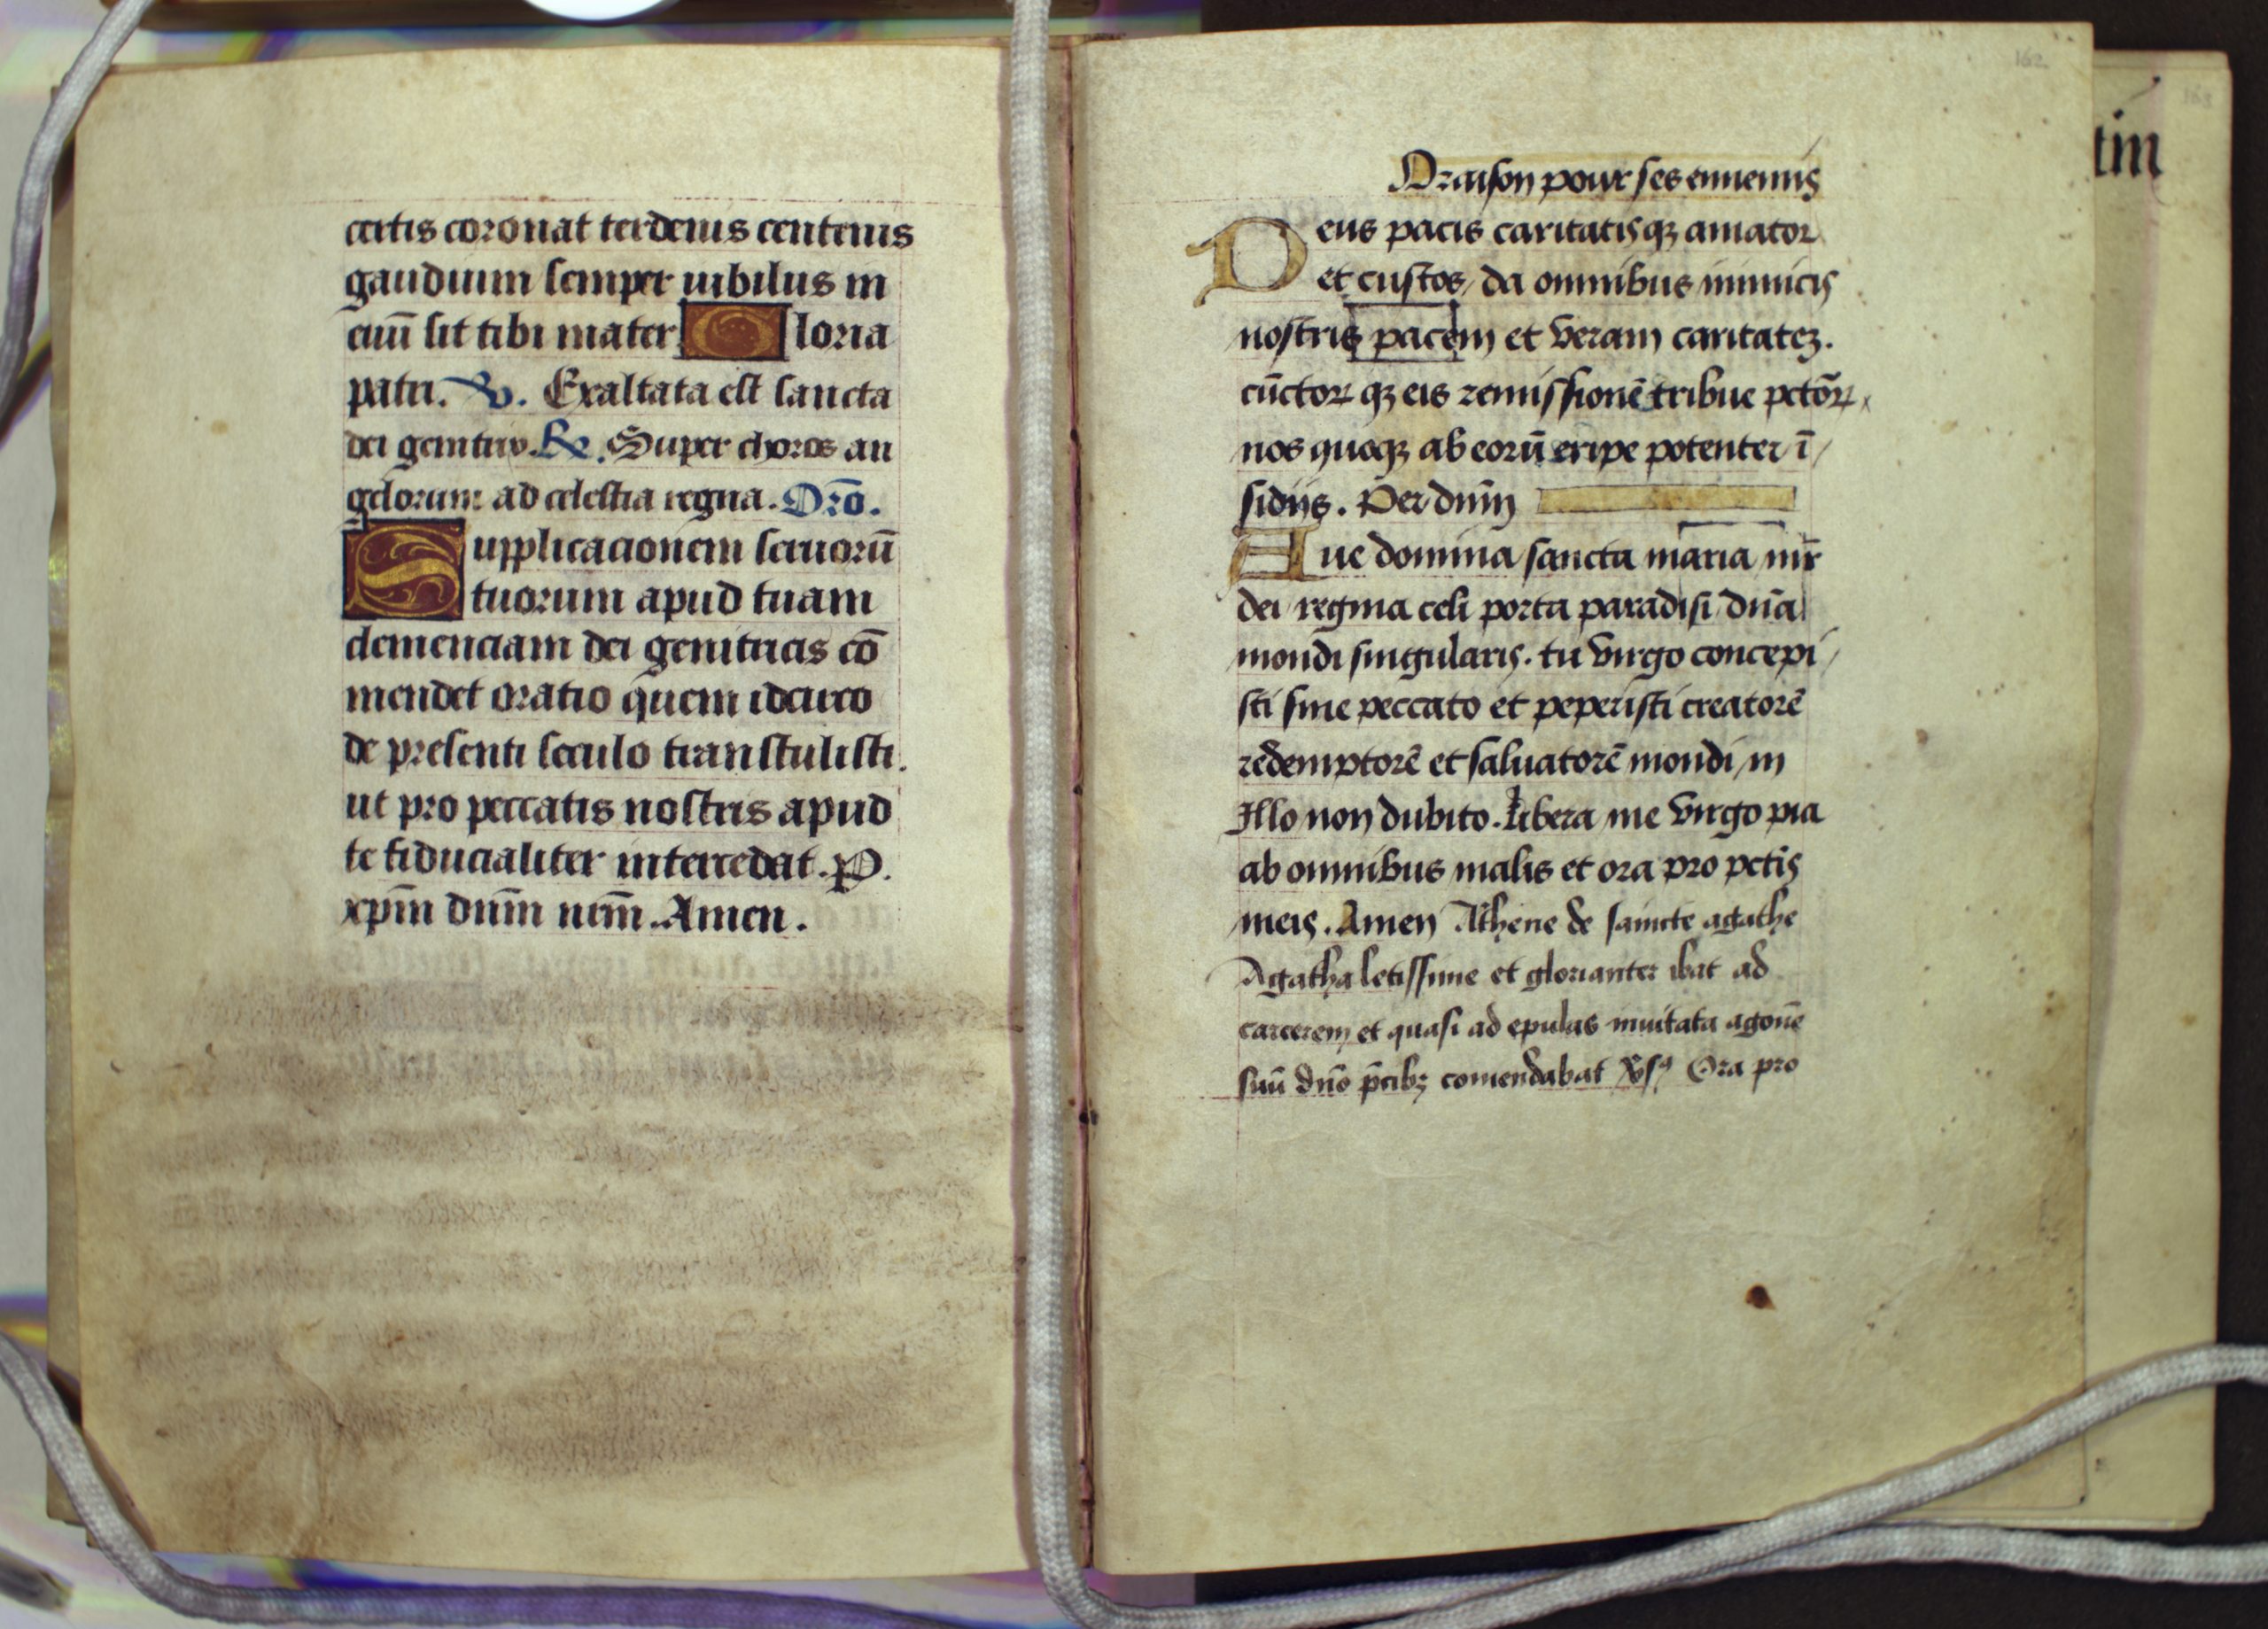 certis coronat terdenis centenis
gaudium semper iubilus in
euū sit tibi mater Gloria
patri. ℣. Exaltata est sancta
dei genitrix. ℟. Super choros an
gelorum ad celestia regna. Orō.
Supplicacionem seruorū
tuorum apud tuam
clemenciam dei genitricis cō
mendet oratio quem idcirco
de presenti seculo transtulisti.
ut pro peccatis nostris apud
te fiducialiter intercedat. P.
xpm̄ dnm̄ nrm̄. Amen.
162
Oraison pour ses ennemis
Deus pacis caritatisqꝫ amator
et custos, da omnibus inimicis
nostris pacem et veram caritateꝫ.
cūctoꝝ qꝫ eis remissionē tribue pctōꝝ
nos quoqꝫ ab eorū eripe potenter ī/
sidiis. Per dnm̄
Aue domina sancta maria mr̄
dei regina celi porta paradisi dn̄a
mondi singularis. tu virgo concepi/
sti sine peccato et peperisti creatorē
redemptorē et saluatorē mondi in
Illo non dubito. libera me virgo pia
ab omnibus malis et ora pro pctis
meis. Amen Athene de saincte agathe
Agatha letissime et glorianter ibat ad
carcerem et quasi ad epulas inuitata agonē
suū dn̄o p̄cibꝫ comendabat ℣sꝰ Ora pro
163
tin